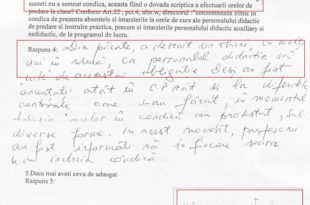 sunții nu a semnat condica, aceasta fiind o dovada scriptica a efectuarii orelor de
predare la clasa? Conform Art.22, pct.4, alin.w, directorul: "consemneaza zilnic in
condica de prezenta absentele si intarzierile la orele de curs ale personalului didactic
de predare si instruire practica, precum si intarzierile personalului didactic auxiliar si
nedidactic, de la programul de lucru,
Raspuns 4: Din păcate, a devenit un obicei, cu mulți
ani în urmă, ca personalul didactic să
de aceasta obligație deși au fost
atât în CP cât și la diferitele
controale care s-au făcut, în momentul
orelor în condică au protestat, sub
diverse forme. In acest moment, profesorii
au fost informați că în fiecare seara
se va încheia condica.
5.Daca mai aveti ceva de adaugat
Raspuns 5: